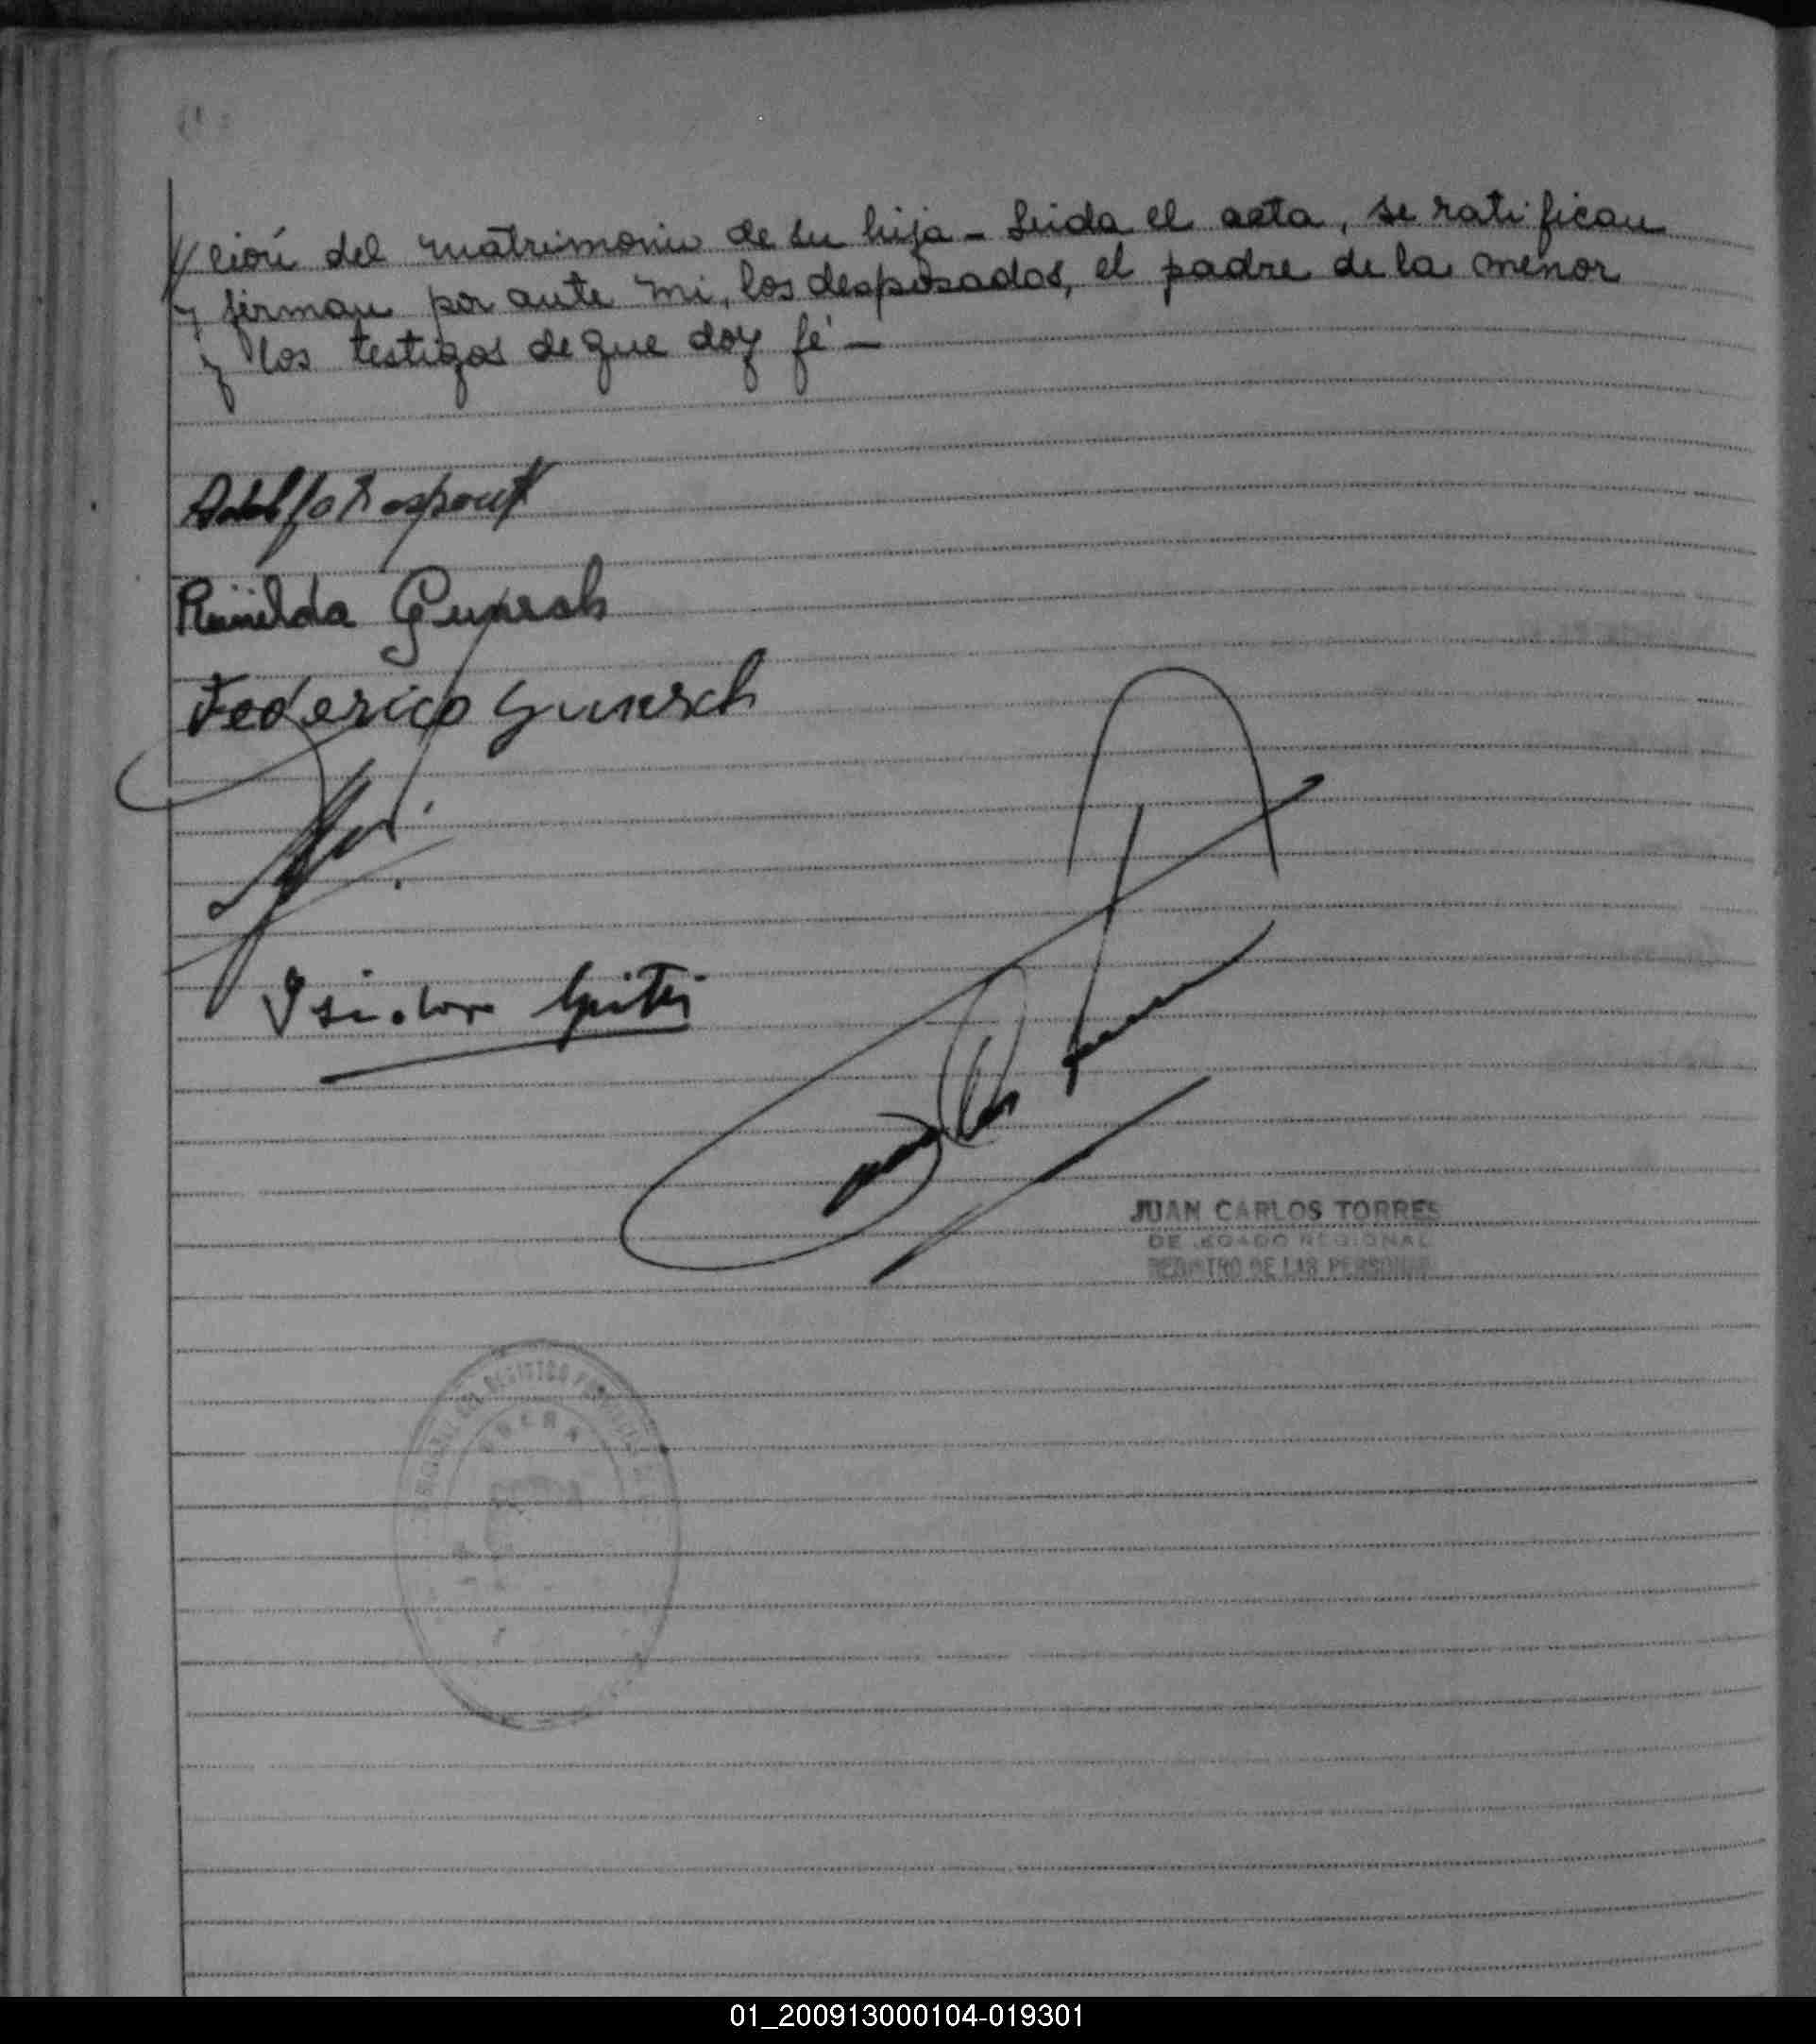 ción del matrimonio de su hija - Leida el acta, se ratifican
y firman por ante mi, los desposados, el padre de la menor
y los testigos de que doy fé -
Adolfo
Reinilda Gunesch
Federico Gunesch
Isidoro
JUAN CARLOS TORRES
DELEGADO REGIONAL
REGISTRO DE LAS PERSONAS
REGISTRO
OBERA
01_200913000104-019301